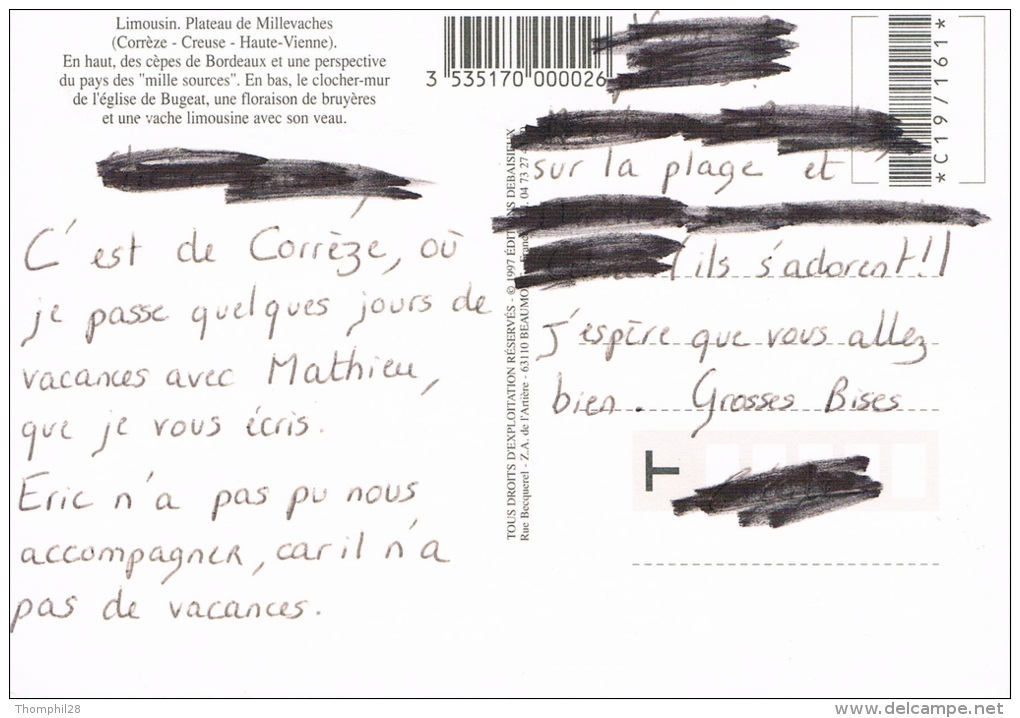 Limousin. Plateau de Millevaches
(Corrèze - Creuse - Haute-Vienne).
En haut, des cèpes de Bordeaux et une perspective
du pays des "mille sources". En bas, le clocher-mur
de l'église de Bugeat, une floraison de bruyères
et une vache limousine avec son veau.
C'est de Corrèze, où
je passe quelques jours de
vacances avec Mathieu,
que je vous écris.
Eric n'a pas pu nous
accompagner, car il n'a
pas de vacances.
3 535170 000026
TOUS DROITS D'EXPLOITATION RÉSERVÉS - © 1997 ÉDITIONS DEBAISIEUX
Rue Becquerel - Z.A. de l'Artière - 63110 BEAUMONT 04 73 27
*C19/161*
sur la plage et
(ils s'adorent!!
J'espère que vous allez
bien. Grosses Bises
T
Thomphil28
delcampe.net